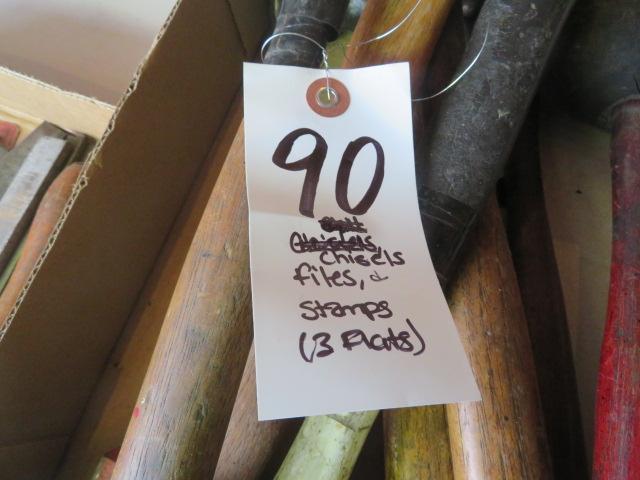 90
chisels
files, &
stamps
(3 Flats)